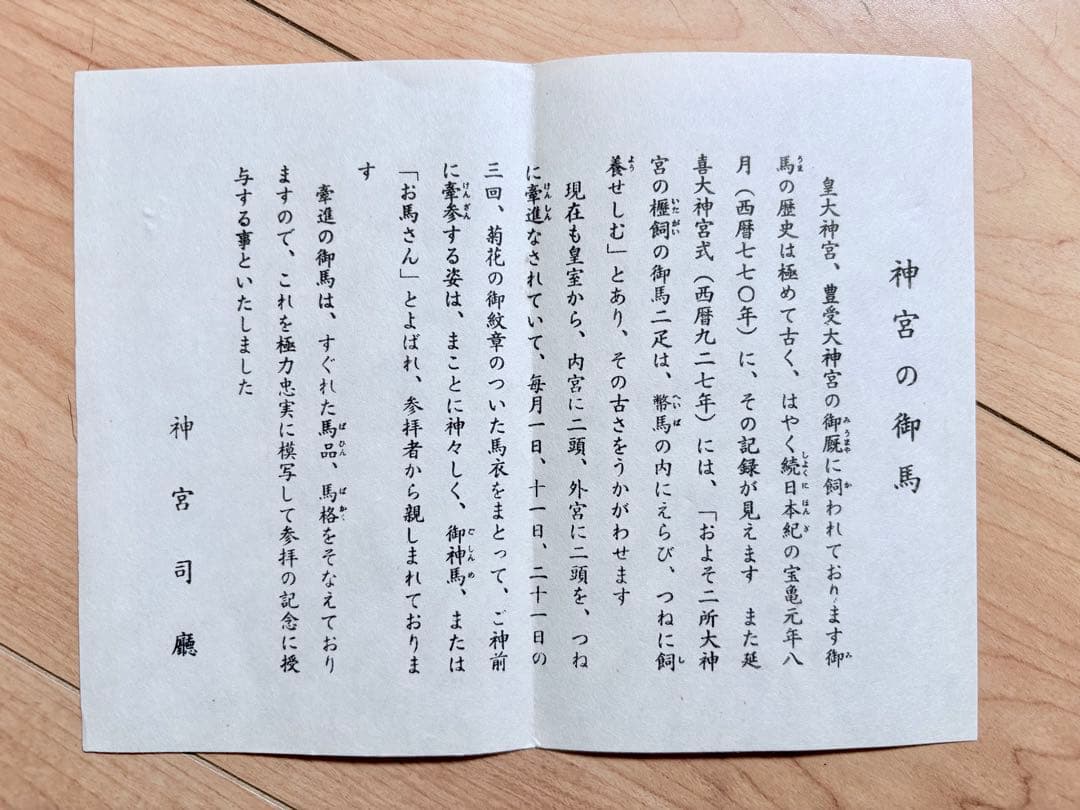 神宮の御馬
皇大神宮、豊受大神宮の御厩に飼われております御
馬の歴史は極めて古く、はやく続日本紀の宝亀元年八
月（西暦七七〇年）に、その記録が見えます　また延
喜大神宮式（西暦九二七年）には、「およそ二所大神
宮の櫪飼の御馬二疋は、幣馬の内にえらび、つねに飼
養せしむ」とあり、その古さをうかがわせます
現在も皇室から、内宮に二頭、外宮に二頭を、つね
に牽進なされていて、毎月一日、十一日、二十一日の
三回、菊花の御紋章のついた馬衣をまとって、ご神前
に牽参する姿は、まことに神々しく、御神馬、または
「お馬さん」とよばれ、参拝者から親しまれておりま
す
牽進の御馬は、すぐれた馬品、馬格をそなえており
ますので、これを極力忠実に模写して参拝の記念に授
与する事といたしました
神宮司廳